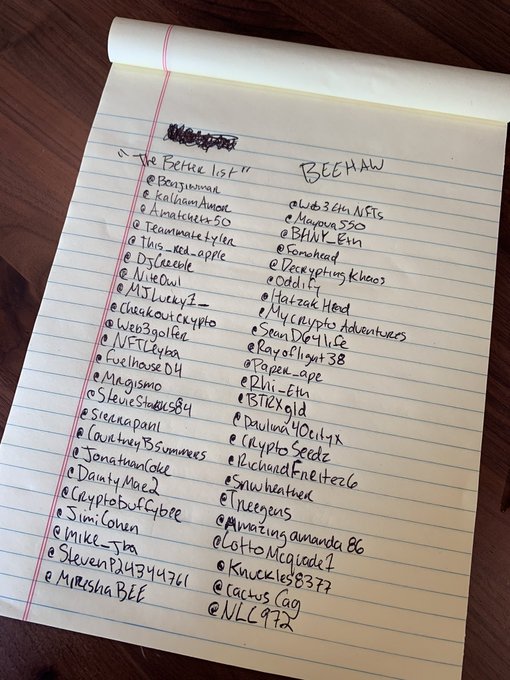 "The Better list"
@Benjiwman
@KalhamAmor
@Amatchett50
@Teammatetyler
@this_red_apple
@DjCreeble
@NiteOwl
@MJLucky1_
@cheakoutcrypto
@Web3golfer
@NFTLeyba
@FuelhouseD4
@Mrgismo
@StevieStacks84
@Sierrapani
@CourtneyBSummers
@JonathanCoke
@DaintyMae2
@CryptoBuffybee
@JimiCohen
@mike_jba
@StevenP24344761
@MireshaBEE
BEEHAW
@Web3GthNFTs
@Mayova550
@BHNY_Eth
@Fomohead
@DecryptingKhaos
@Oddify
@HatzakHead
@MyCryptoAdventures
@SeanD64life
@Rayoflight38
@Paper_ape
@Rhi_Eth
@BTRXgld
@Paulina40cityx
@CryptoSeedz
@RichardFreitez6
@snwheather
@Treegens
@Amazingamanda86
@LottoMcquade1
@Knuckles8377
@CactusCag
@NLC972